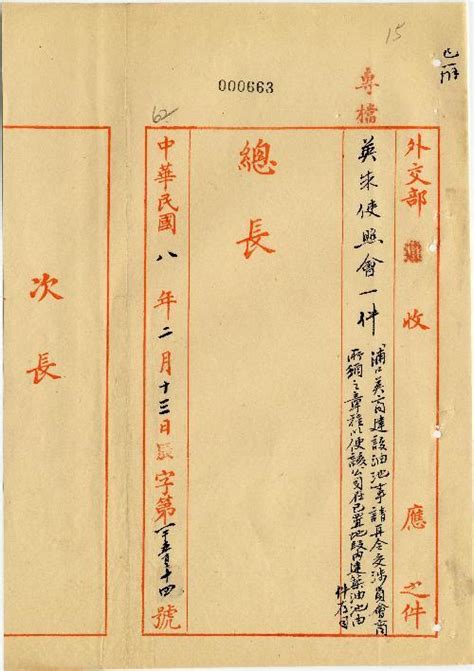 15
已辦
000663
專檔
62
外交部收應之件
英朱使照會一件
浦口英商建設油池事請再令交涉員會商
所綱之章程以便該公司在已置地段內建築油池由
件存司
總長
中華民國八年二月十三日辰字第一千五百十四號
次長